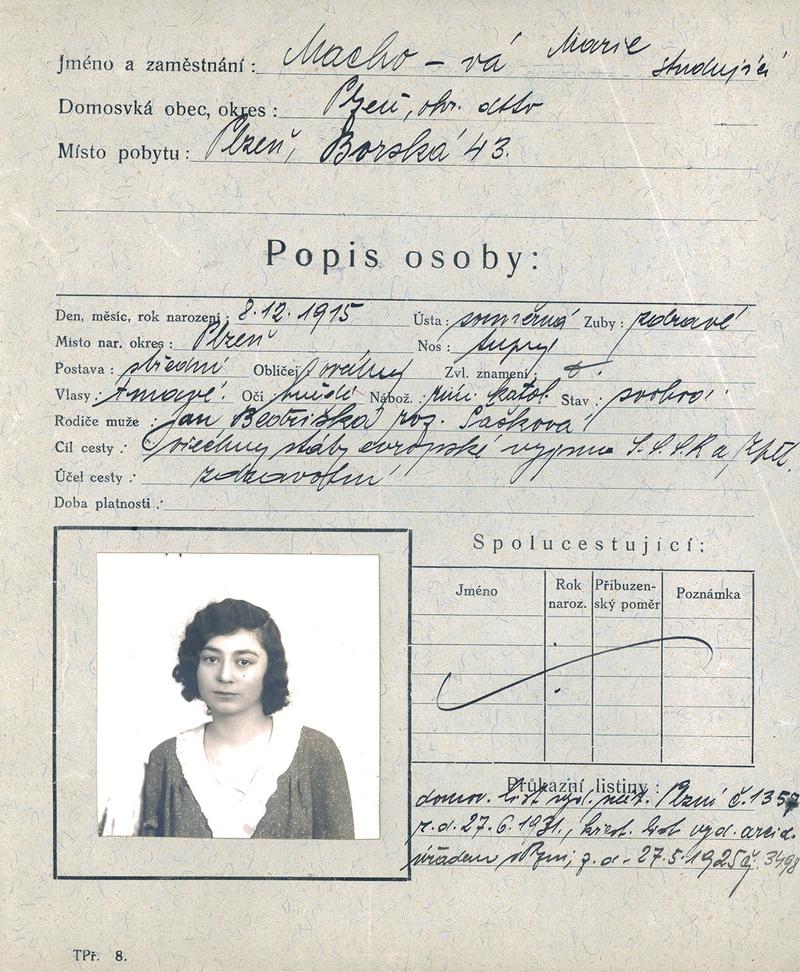 Jméno a zaměstnání : Macho – vá Marie studující
Domosvká obec, okres : Plzeň, okr. dtto
Místo pobytu : Plzeň, Borská 43.
Popis osoby:
Den, měsíc, rok narození : 8.12.1915 Ústa : souměrná Zuby : zdravé
Místo nar. okres : Plzeň Nos : tupý
Postava : střední Obličej oválný Zvl. znamení :
Vlasy : tmavé. Oči hnědé Nábož. : řím. katol. Stav : svobod.
Rodiče muže : Jan Bedřiška roz. Šašková
Cíl cesty : všechny státy evropské vyjma S.S.S.R a
Účel cesty : zdravotní
Doba platnosti :
Spolucestující:
Jméno Rok naroz. Přibuzen-ský poměr Poznámka
Průkazní listiny :
domov. list vyd. Plzni č. 1357
z. d. 27.6.1931, křest. list vyd. arcid.
úřadem v Plzni, z. d. 27.5.1925 č. 3498
TPř. 8.